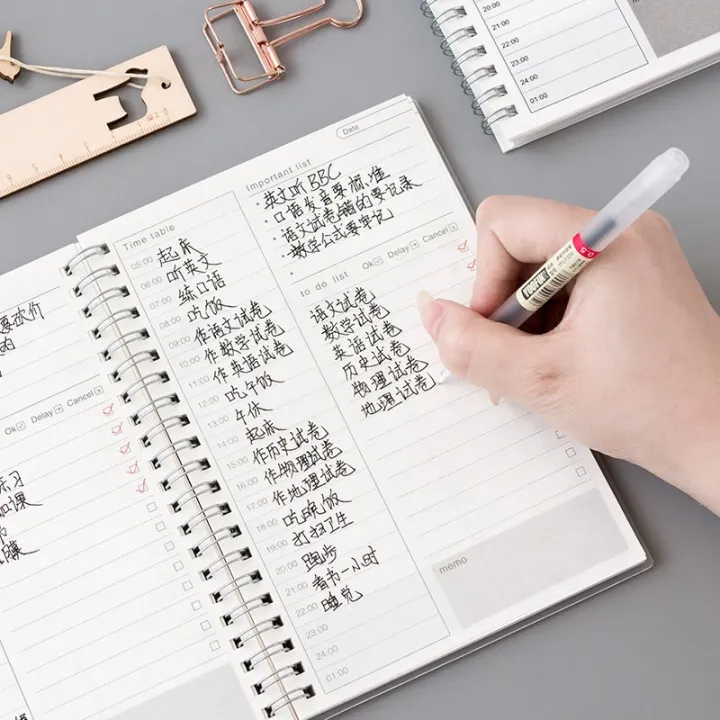 20:00
21:00
22:00
23:00
24:00
01:00
的
Ok Delay Cancel
Time table
05:00 起床
06:00 听英文
07:00 练口语
08:00 吃饭
09:00 作语文试卷
10:00 作数学试卷
11:00 作英语试卷
12:00 吃午饭
13:00 午休
14:00 起床
15:00 作历史试卷
16:00 作物理试卷
17:00 作地理试卷
18:00 吃晚饭
19:00 打扫卫生
20:00 跑步
21:00 看书一小时
22:00 睡觉
23:00
24:00
01:00
Date
important list
英文听BBC
口语发音要标准
语文试卷错的要记录
数学公式要牢记
to do list Ok Delay Cancel
语文试卷
数学试卷
英语试卷
历史试卷
物理试卷
地理试卷
memo
0.5